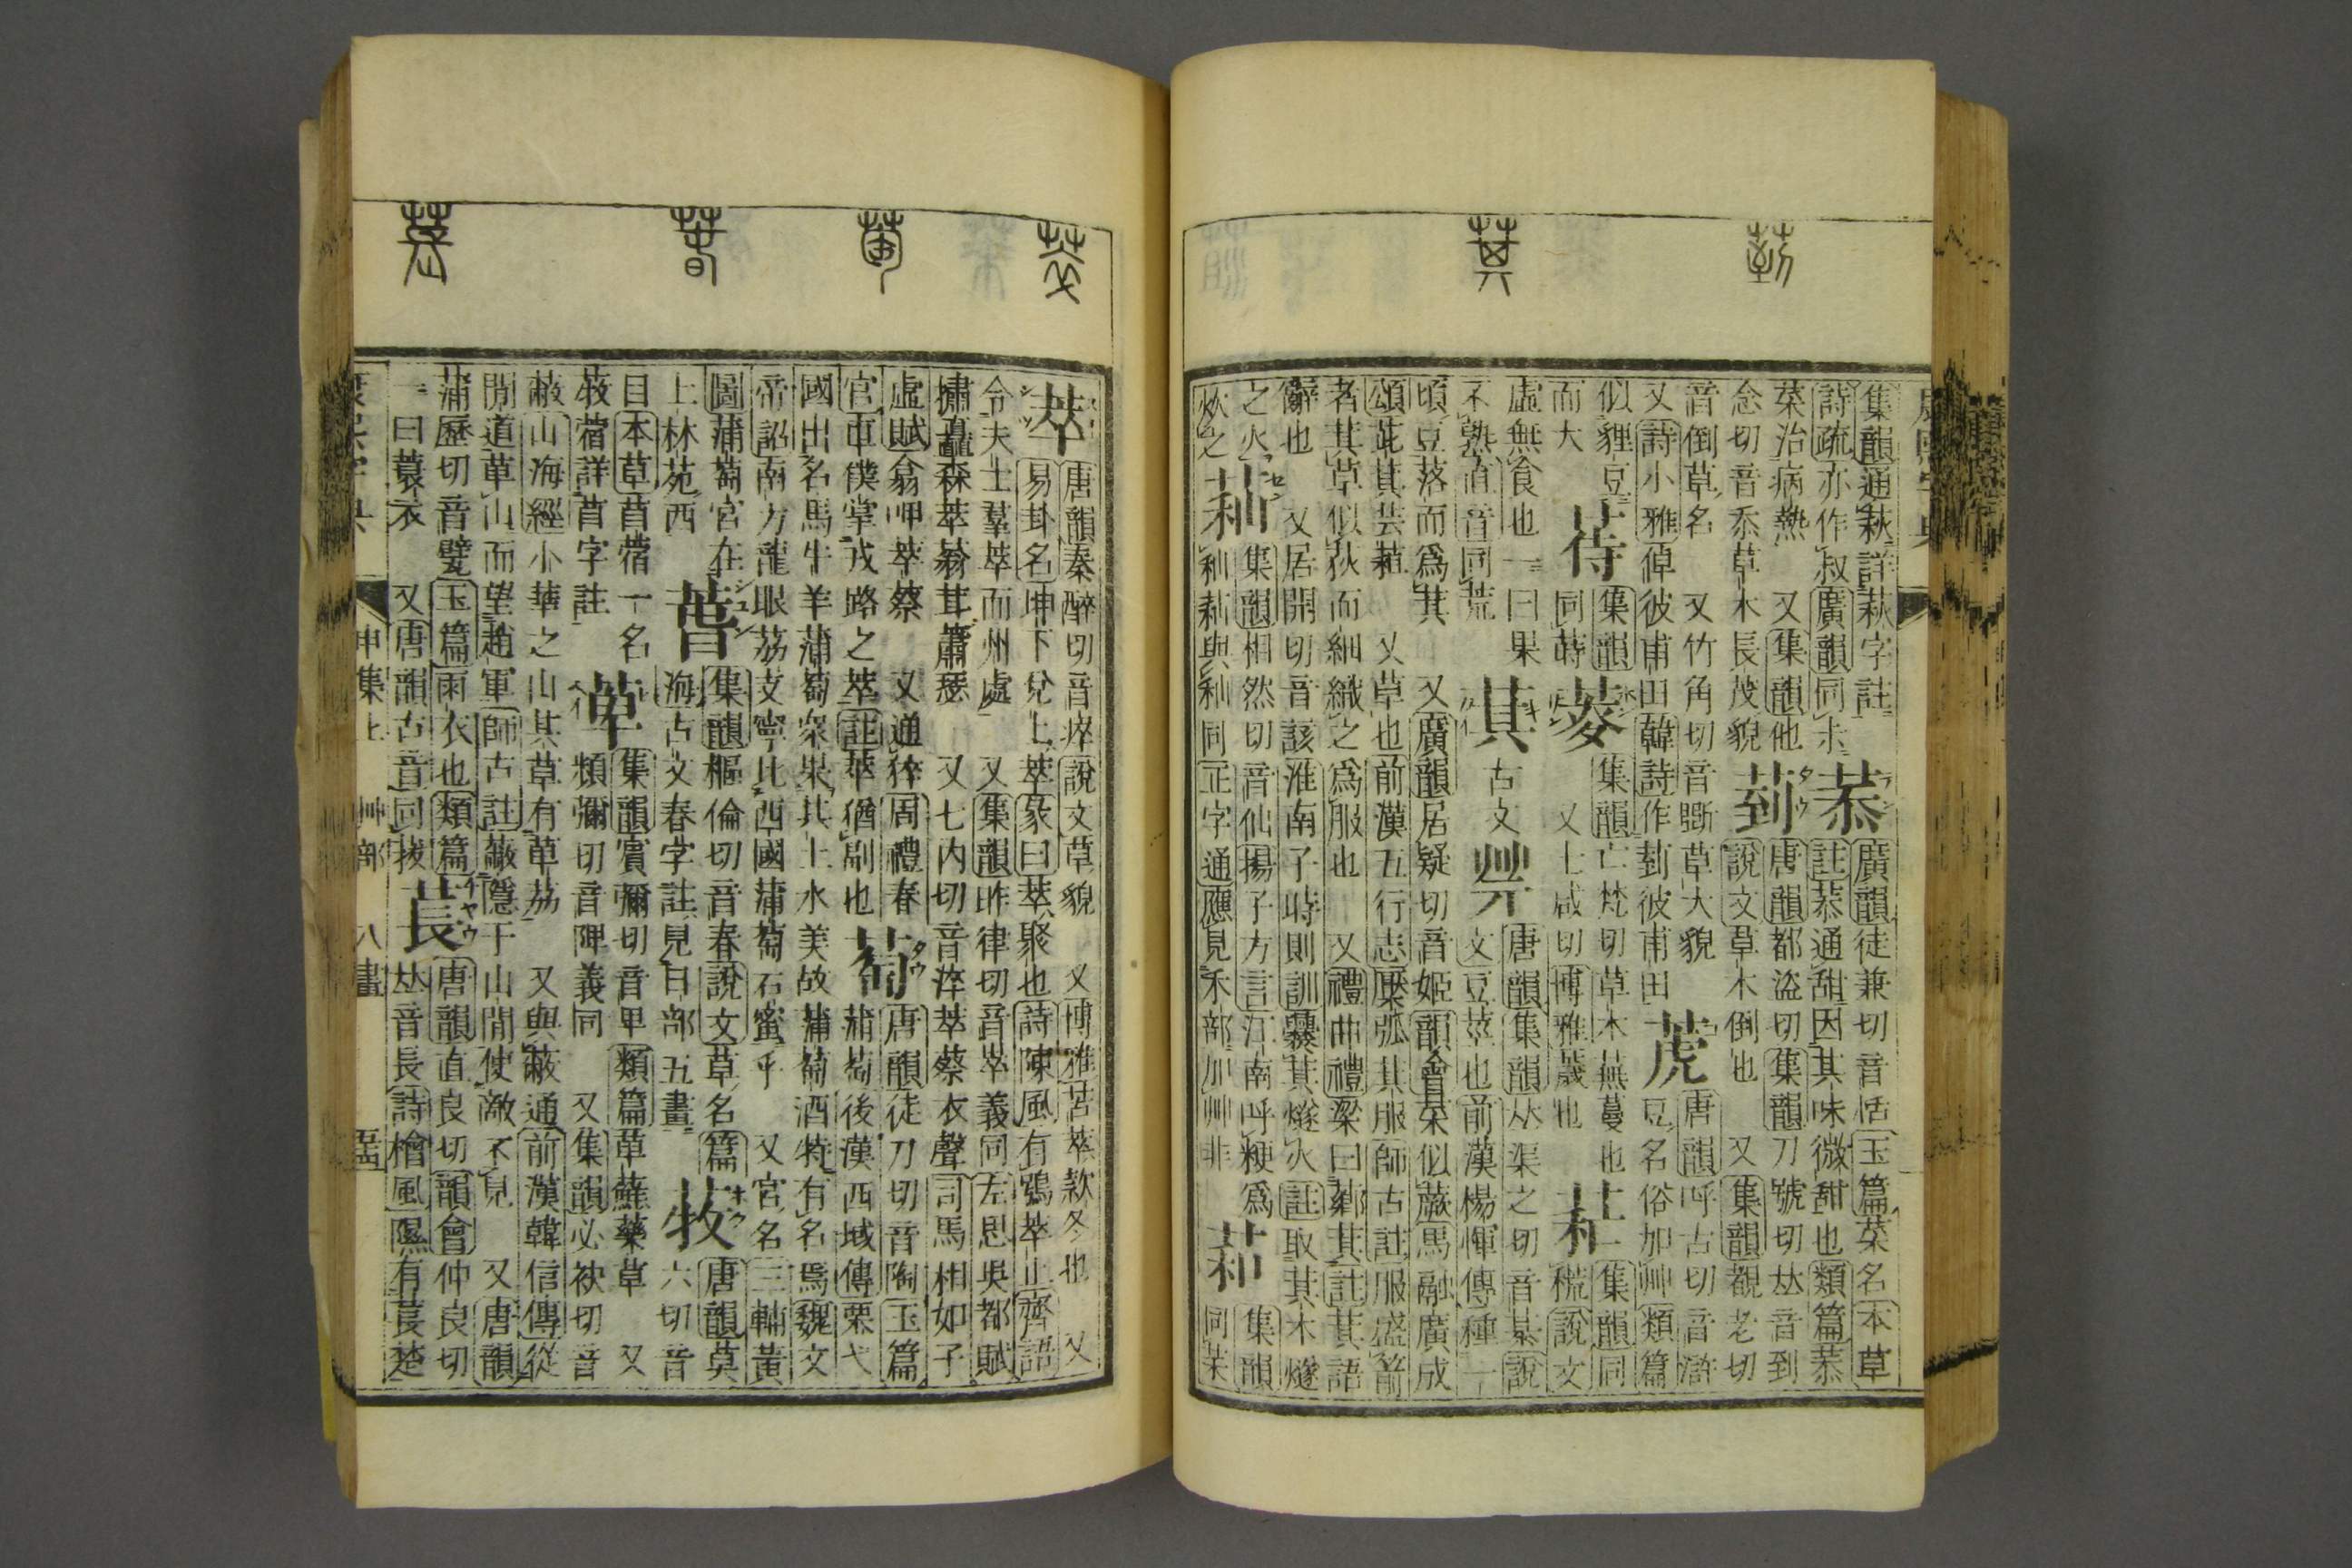 集韻通萩詳萩字註
詩疏亦作叔廣韻同尗
菾
廣韻徒兼切音恬玉篇菜名本草
註菾通甜因其味微甜也類篇菾
菜治病熱 又集韻他
念切音忝草木長茂貌
菿
唐韻都盜切集韻刀號切𠀤音到
說文草木倒也 又集韻覩老切
音倒草名 又竹角切音斵草大貌
又詩小雅倬彼甫田韓詩作菿彼甫田
萀
唐韻呼古切音滸
豆名俗加艸類篇
似貍豆
而大
荶
集韻
同蒔
䓮
集韻亡梵切草木蕪蔓也
又土咸切博雅薉也
集韻同
𥡆說文
虛無食也一曰果
不熟直音同荒
萁
古文
唐韻集韻𠀤渠之切音綦說
文豆莖也前漢楊惲傳種一
頃豆落而爲萁 又廣韻居疑切音姬韻會菜似蕨馬融廣成
頌茈萁芸蒩 又草也前漢五行志檿弧萁服師古註服盛箭
者萁草似荻而細織之爲服也 又禮曲禮梁曰薌萁註萁語
辭也 又居開切音該淮南子時則訓爨萁燧火註取萁木燧
之火
炊之
集韻相然切音仙揚子方言江南呼粳爲
秈與秈同正字通應見禾部加艸非
集韻
同菜
萃
唐韻秦醉切音瘁說文草貌 又博雅苦萃款冬也 又
易卦名坤下兌上萃彖曰萃聚也詩陳風有鴞萃止齊語
令夫士羣萃而州處 又集韻昨律切音崒義同左思吳都賦
橚矗森萃蓊茸蕭瑟 又七內切音淬萃蔡衣聲司馬相如子
虛賦翕呷萃蔡 又通倅周禮春
官車僕掌戎路之萃註萃猶副也
萄
唐韻徒刀切音陶玉篇
蒲萄後漢西域傳栗弋
國出名馬牛羊蒲萄衆果其土水美故蒲萄酒特有名焉魏文
帝詔南方龍眼荔支寧比西國蒲萄石蜜乎 又宮名三輔黃
圖蒲萄宮在
上林苑西
萅
集韻樞倫切音春說文草名篇
海古文春字註見日部五畫
牧
唐韻莫
六切音
目本草苜蓿一名
牧蓿詳苜字註
萆
集韻賓彌切音卑類篇草蘇藥草 又
頻彌切音陴義同 又集韻必袂切音
蔽山海經小華之山其草有萆荔 又與蔽通前漢韓信傳從
閒道萆山而望趙軍師古註蔽隱于山閒使敵不見 又唐韻
蒲歷切音甓玉篇雨衣也類篇
一曰蓑衣 又唐韻古音同拔
萇
唐韻直良切韻會仲良切
𠀤音長詩檜風隰有萇楚
申集上 艸部 八畫